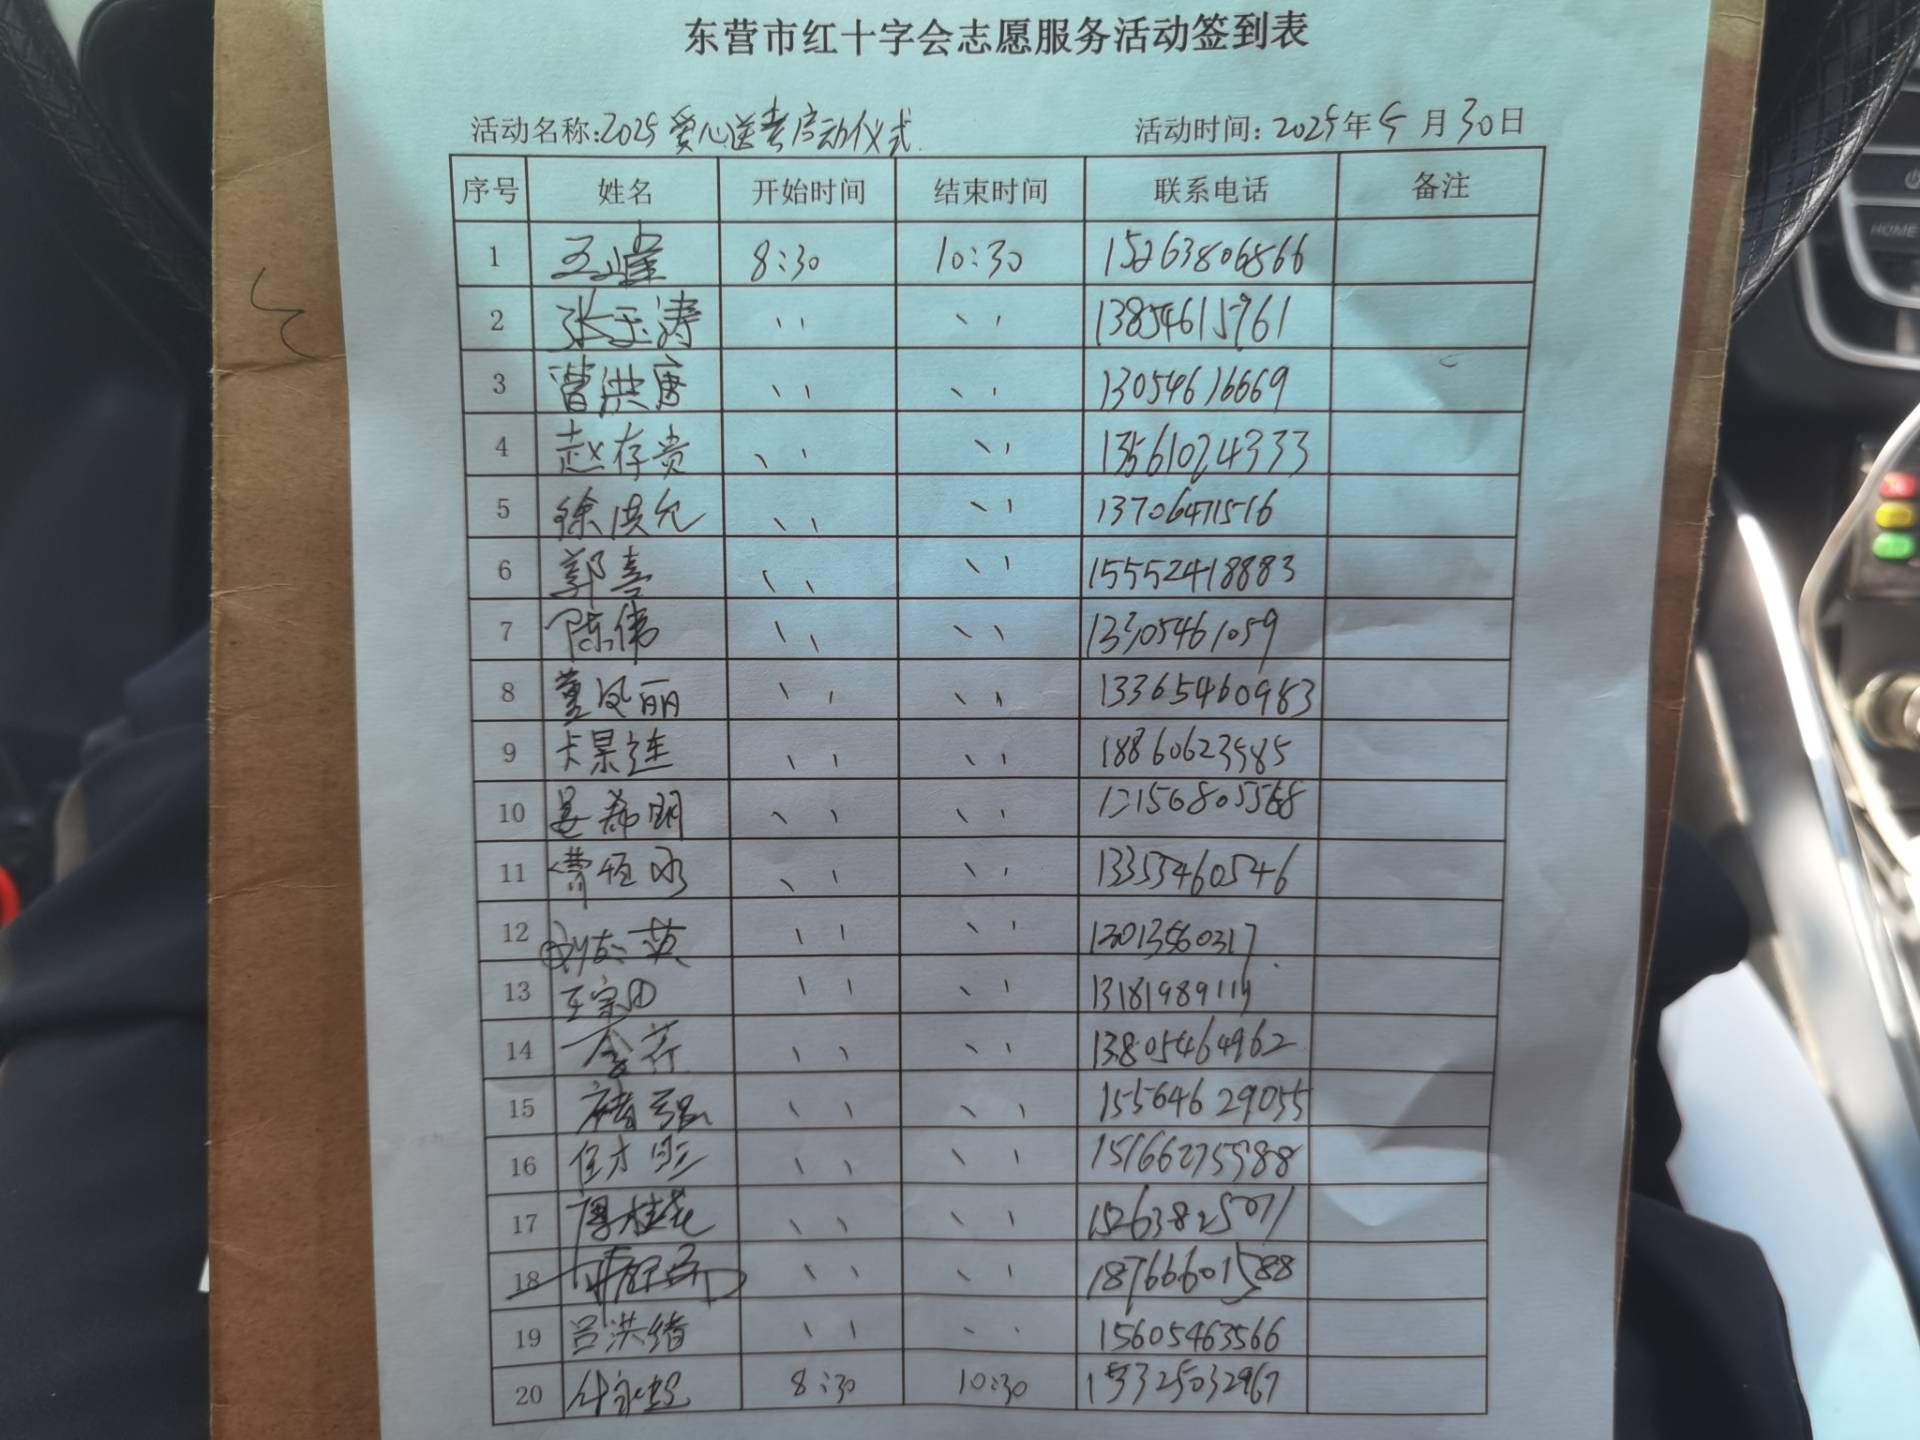 东营市红十字会志愿服务活动签到表
活动名称:2025爱心送考启动仪式 活动时间: 2025年5月30日
序号 姓名 开始时间 结束时间 联系电话 备注
1 王 8:30 10:30 15263806866
2 张玉涛 、、 、、 13854615961
3 曹洪唐 、、 、、 13054616669
4 赵存贵 、、 、、 13561024333
5 徐洪允 、、 、、 13706471516
6 郭喜 、、 、、 15552418883
7 陈伟 、、 、、 13305461059
8 董凤丽 、、 、、 13365460983
9 连 、、 、、 18860623585
10 姜希明 、、 、、
11 曹恒 、、 、、 13355460546
12 英 、、 、、
13 王宗 、、 、、
14 、、 、、 13805464962
15 褚强 、、 、、 15564629055
16 任才 、、 、、
17 桂花 、、 、、 15263825071
18 、、 、、 18766601588
19 吕洪绪 、、 、、 15605463566
20 8:30 10:30 153325032967